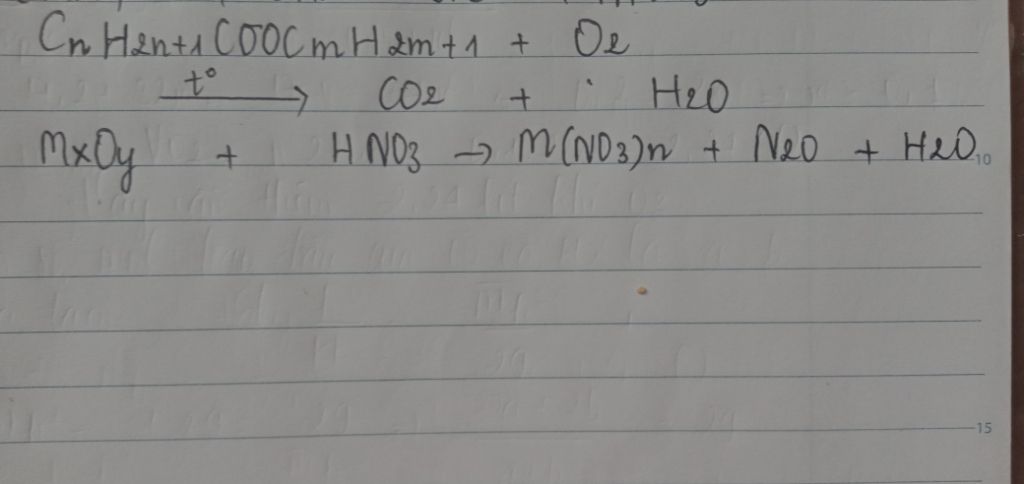 CnH2n+1COOCmH2m+1 + O2
t° → CO2 + H2O
MxOy + HNO3 → M(NO3)n + N2O + H2O
10
15